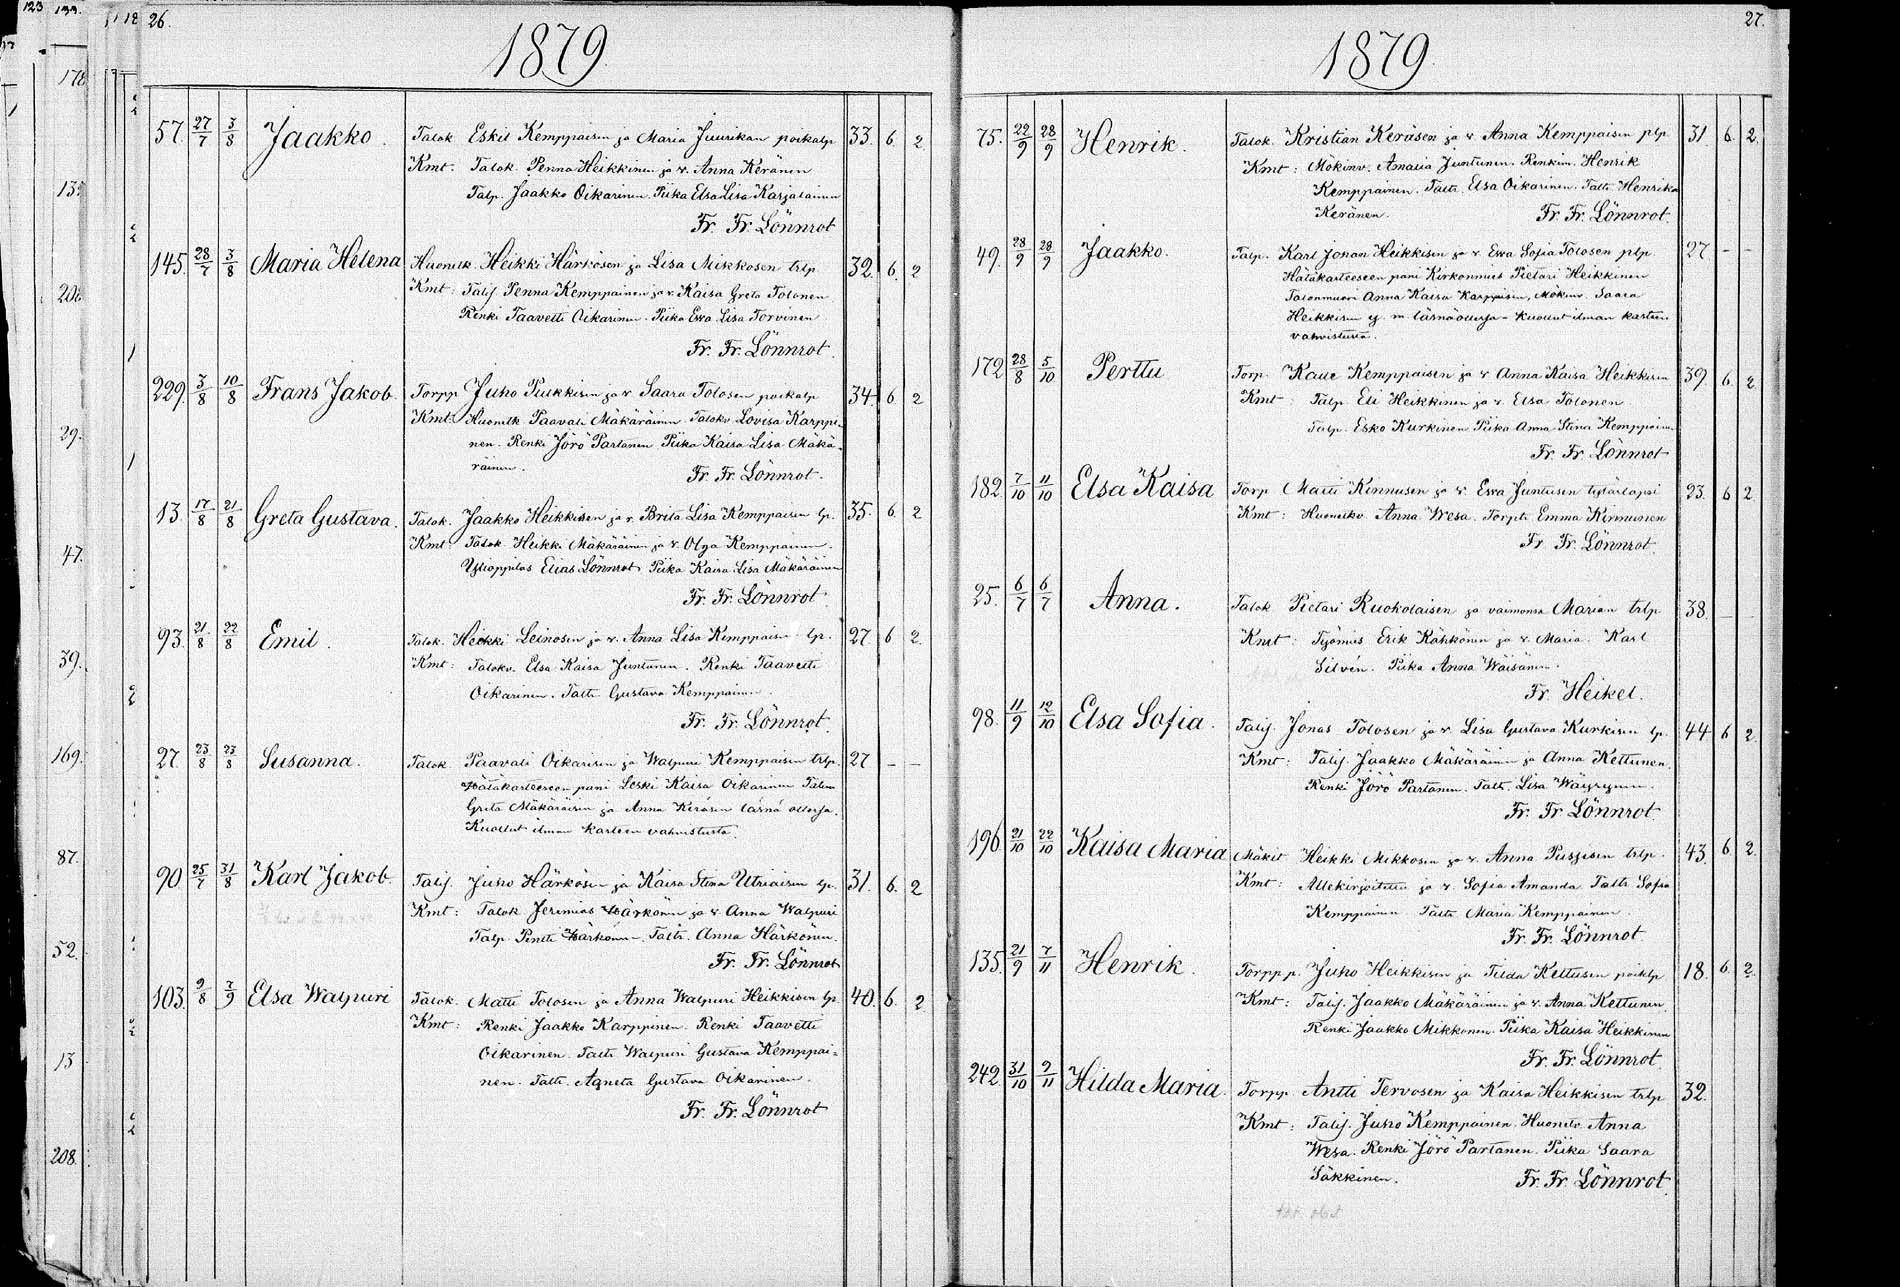 26.
1879.
57. 27/7 3/8 Jaakko. Talok. Eskil Kemppaisen ja Maria Juurikan poikalp 33. 6. 2.
Kmt: Talok. Penna Heikkinen ja v. Anna Keränen
Talp. Jaakko Oikarinen. Piika Elsa Lisa Karjalainen
Fr. Fr. Lönnrot
145. 28/7 3/8 Maria Helena Huonelk. Heikki Härkösen ja Lisa Mikkosen trlp 32. 6. 2
Kmt: Talij Penna Kemppainen ja v. Kaisa Greta Tolonen
Renki Taavetti Oikarinen. Piika Ewa Lisa Torvinen
Fr. Fr. Lönnrot.
229. 3/8 10/8 Frans Jakob. Torpp. Juho Pulkkisen ja v Saara Tolosen poikalp 34. 6 2
Kmt: Huonelk Paavali Mäkäräinen. Talokv Lovisa Karppi-
nen. Renki Jörö Partanen Piika Kaisa Lisa Mäkä-
räinen.
Fr. Fr. Lönnrot.
13. 17/8 21/8 Greta Gustava. Talok. Jaakko Heikkisen ja v. Brita Lisa Kemppaisen lp. 35. 6 2
Kmt: Talok Heikki Mäkäräinen ja v. Olga Kemppainen.
Ylioppilas Elias Lönnrot Piika Kaisa Lisa Mäkäräinen
Fr. Fr. Lönnrot.
93. 21/8 22/8 Emil. Talok. Heikki Leinosen ja v. Anna Lisa Kemppaisen lp. 27. 6 2.
Kmt: Talokv. Elsa Kaisa Juntunen. Renki Taavetti
Oikarinen. Taltr Gustava Kemppainen.
Fr. Fr. Lönnrot.
27. 23/8 23/8 Susanna. Talok Paavali Oikarisen ja Walpuri Kemppaisen trlp. 27 – –
Hätäkasteeseen pani Leski Kaisa Oikarinen Talem
Greta Mäkäräisen ja Anna Keräsen läsnä ollessa.
Kuollut ilman kasteen vahvistusta.
90 25/7 31/8 Karl Jakob. Talij. Juho Härkösen ja Kaisa Stina Utriaisen lp. 31. 6. 2
Kmt: Talok Jeremias Härkönen ja v Anna Walpuri
Talp. Pentti Härkönen. Taltr. Anna Härkönen.
Fr. Fr. Lönnrot
103. 9/8 7/9 Elsa Walpuri Talok. Matti Tolosen ja Anna Walpuri Heikkisen lp. 40. 6. 2
Kmt: Renki Jaakko Karppinen. Renki Taavetti
Oikarinen. Taltr Walpuri Gustava Kemppai=
nen. Taltr. Agneta Gustava Oikarinen.
Fr. Fr. Lönnrot
27.
1879.
75. 22/9 28/9 Henrik. Talok. Kristian Keräsen ja v. Anna Kemppaisen plp. 31. 6. 2.
Kmt: Mökinv. Amalia Juntunen. Renkim. Henrik
Kemppainen. Taltr. Elsa Oikarinen. Taltr Henrika
Keränen. Fr. Fr. Lönnrot.
49. 28/9 28/9 Jaakko. Talp. Karl Johan Heikkisen ja v Ewa Sofia Tolosen plp. 27 – –
Hätäkasteeseen pani Kirkonmies Pietari Heikkinen
Talonmuori Anna Kaisa Karppisen, Mökinv Saara
Heikkisen y. m. läsnäollessa – kuollut ilman kasteen
vahvistusta.
172 28/8 5/10 Perttu Torp. Kalle Kemppaisen ja v Anna Kaisa Heikkisen 39 6. 2
Kmt: Talp Eli Heikkinen ja v. Elsa Tolonen
Talp. Esko Kurkinen Piika Anna Stina Kemppain.
Fr. Fr Lönnrot
182. 7/10 11/10 Elsa Kaisa Torp Matti Kinnusen ja v. Ewa Juntusen tytärlapsi 23. 6 2
Kmt: Huonelkv Anna Wesa. Torptr Emma Kinnunen
Fr Fr. Lönnrot.
25. 6/7 6/7 Anna. Talok Pietari Ruokolaisen ja vaimonsa Marian trlp. 38. – –
Kmt: Työmies Erik Kähkönen ja v. Maria. Karl
Silvén. Piika Anna Wäisänen.
Fr. Heikel.
98. 11/9 12/10 Elsa Sofia. Talij. Jonas Tolosen ja v. Lisa Gustava Kurkisen lp. 44 6 2
Kmt: Talij. Jaakko Mäkäräinen ja Anna Kettunen.
Renki Jörö Partanen. Taltr. Lisa Wäyrynen.
Fr. Fr Lönnrot.
196. 21/10 22/10 Kaisa Maria Mäkit Heikki Mikkosen ja v. Anna Pussisen trlp. 43. 6. 2.
Kmt: Allekirjoittanut ja v. Sofia Amanda Taltr Sofia
Kemppainen Taltr Maria Kemppainen.
Fr. Fr. Lönnrot.
135. 21/9 7/11 Henrik. Torpp.p. Juho Heikkisen ja Tilda Kettusen poiklp 18. 6 2.
Kmt: Talij. Jaakko Mäkäräinen ja v. Anna Kettunen.
Renki Jaakko Mikkonen. Piika Kaisa Heikkinen
Fr. Fr. Lönnrot.
242 31/10 9/11 Hilda Maria. Torpp. Antti Tervosen ja Kaisa Heikkisen trlp. 32.
Kmt: Talij. Juho Kemppainen. Huonelv Anna
Wesa. Renki Jörö Partanen. Piika Saara
Säkkinen. Fr. Fr. Lönnrot.